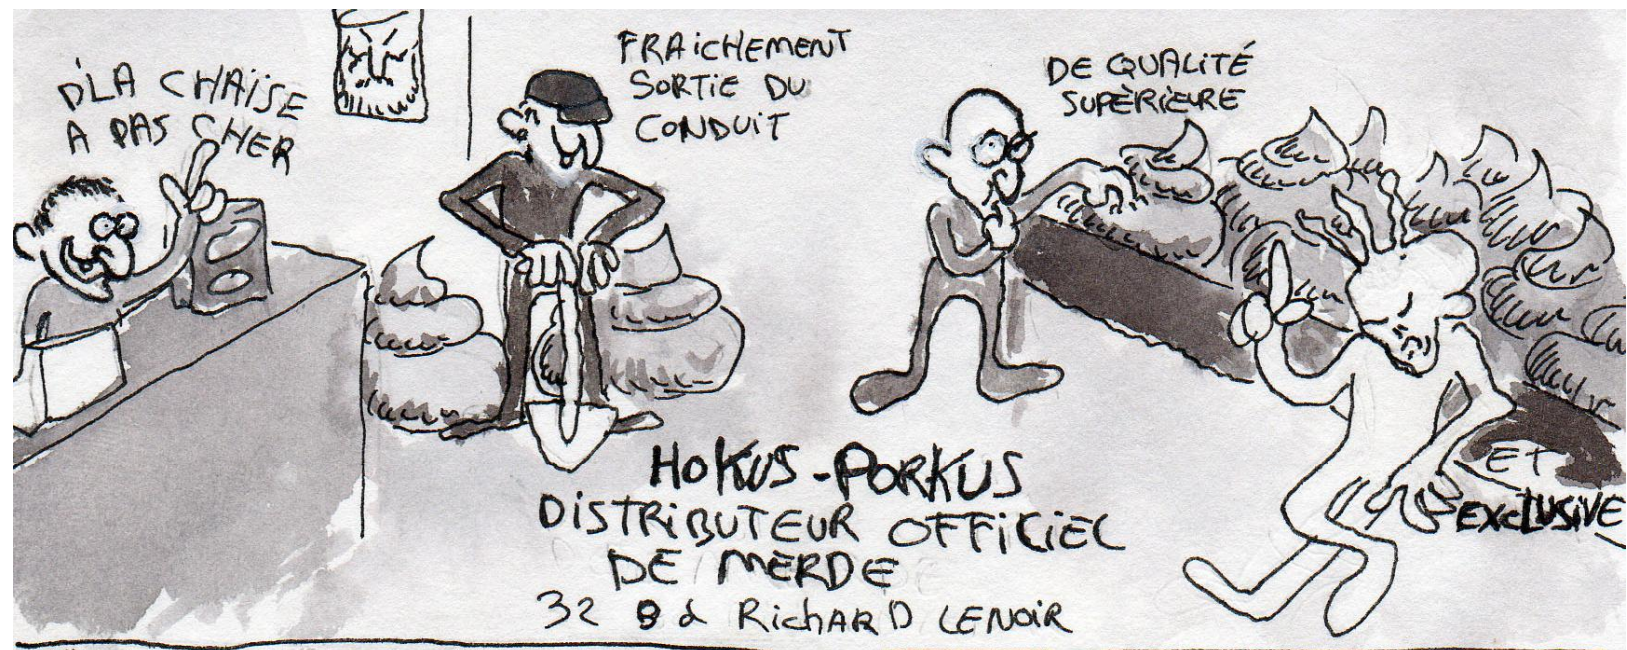 D'LA CHAÏSE
A PAS CHER
FRAiCHEMENT
SORTIE DU
CONDUIT
DE QUALITÉ
SUPÈRiEURE
ET
EXCLUSIVE
HOKUS-PORKUS
DiSTRiBUTEUR OFFiCiEL
DE MERDE
32 Bd RichARD LENOiR